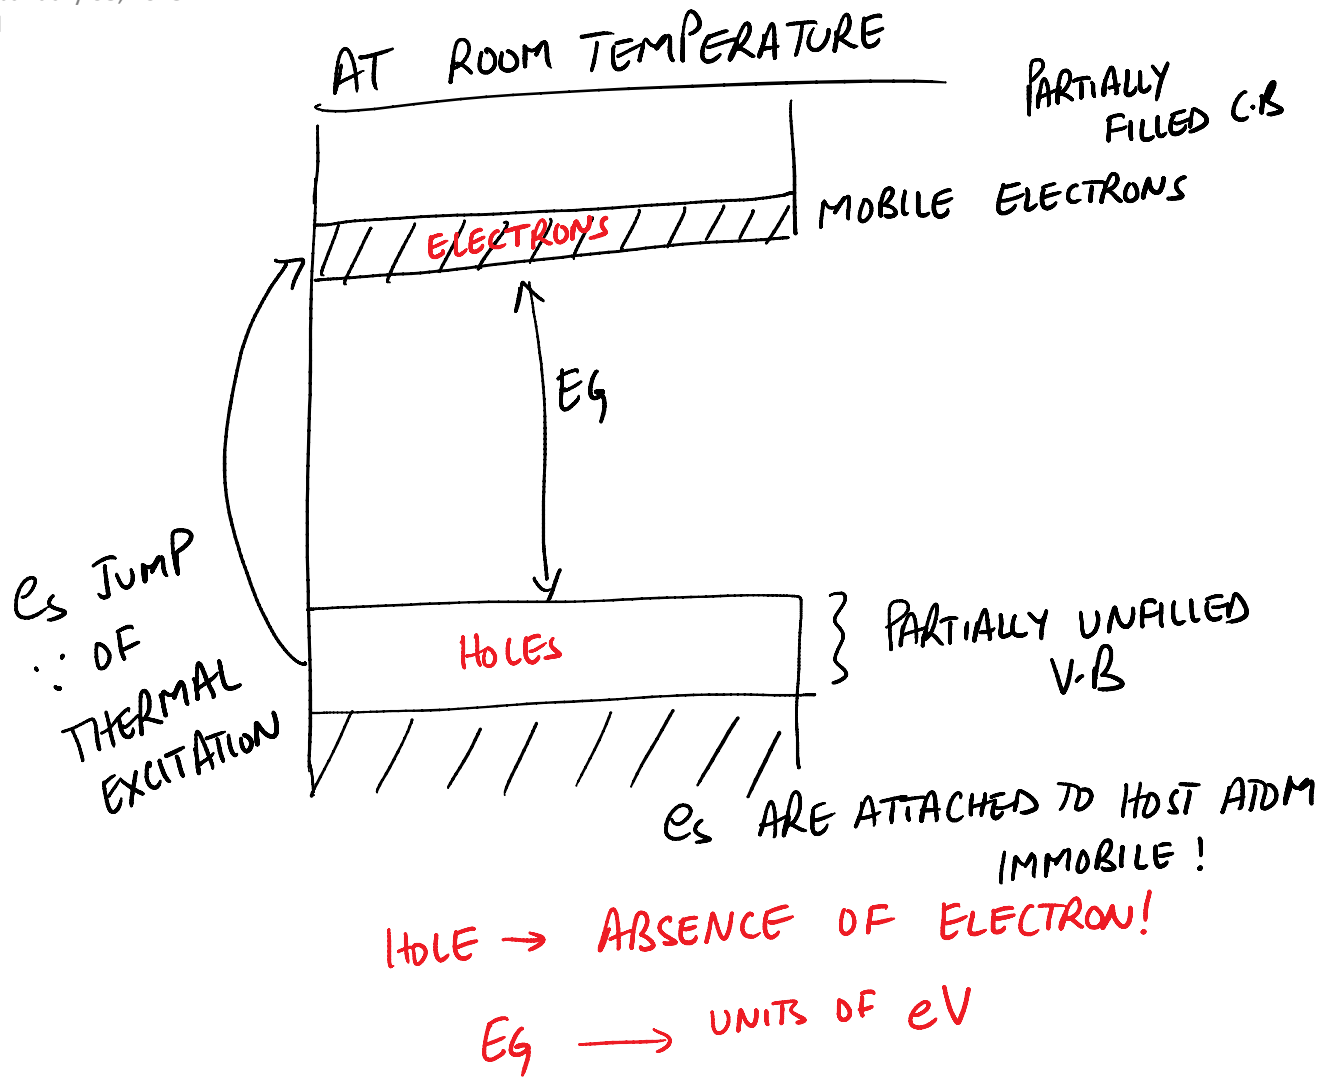 AT ROOM TEMPERATURE
PARTIALLY
FILLED C.B
MOBILE ELECTRONS
ELECTRONS
EG
es JUMP
∵ OF
THERMAL
EXCITATION
HOLES
PARTIALLY UNFILLED
V.B
es ARE ATTACHED TO HOST ATOM
IMMOBILE !
HOLE → ABSENCE OF ELECTRON!
EG → UNITS OF eV